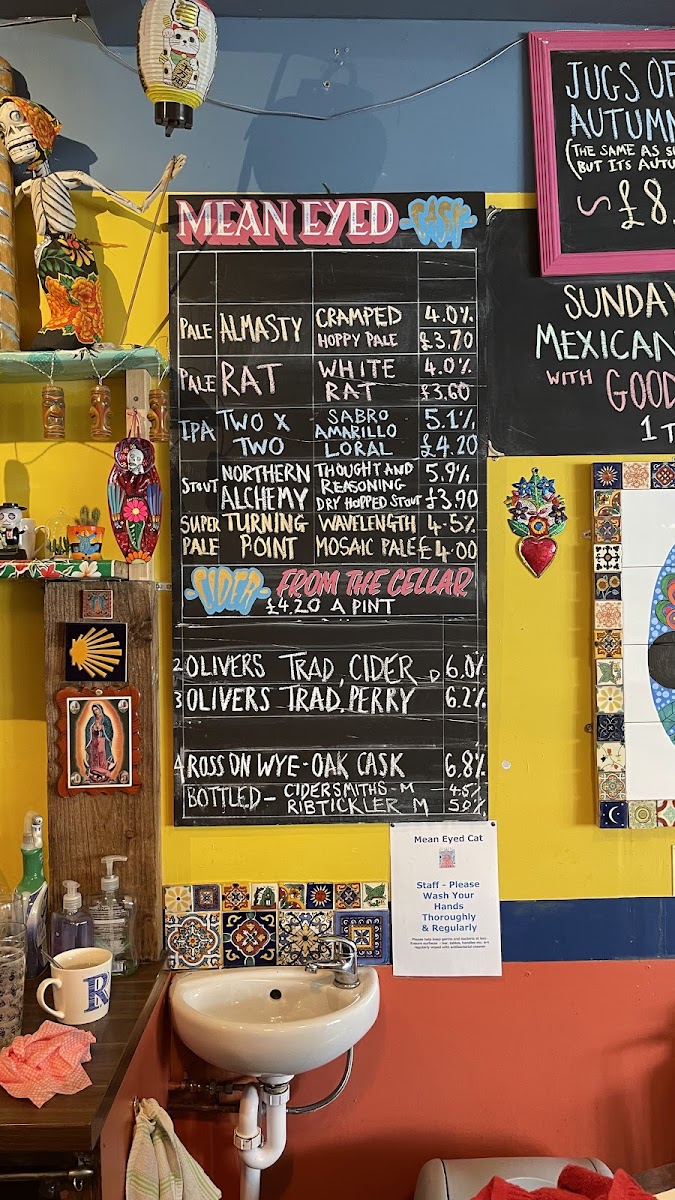 MEAN EYED CASK
PALE ALMASTY CRAMPED 4.0%
HOPPY PALE £3.70
PALE RAT WHITE RAT 4.0%
£3.60
IPA TWO X TWO SABRO 5.1%
AMARILLO
LORAL £4.20
STOUT NORTHERN ALCHEMY THOUGHT AND REASONING 5.9%
DRY HOPPED STOUT £3.90
SUPER PALE TURNING POINT WAVELENGTH 4.5%
MOSAIC PALE £4.00
CIDER FROM THE CELLAR
£4.20 A PINT
2 OLIVERS TRAD, CIDER D 6.0%
3 OLIVERS TRAD, PERRY 6.2%
4 ROSS ON WYE-OAK CASK 6.8%
BOTTLED - CIDERSMITHS - M 4.5%
RIBTICKLER M 5.0%
JUGS OF
AUTUMN
(THE SAME AS
BUT ITS
£8
SUNDAY
MEXICAN
WITH GOOD
1
Mean Eyed Cat
Staff - Please
Wash Your
Hands
Thoroughly
& Regularly
R